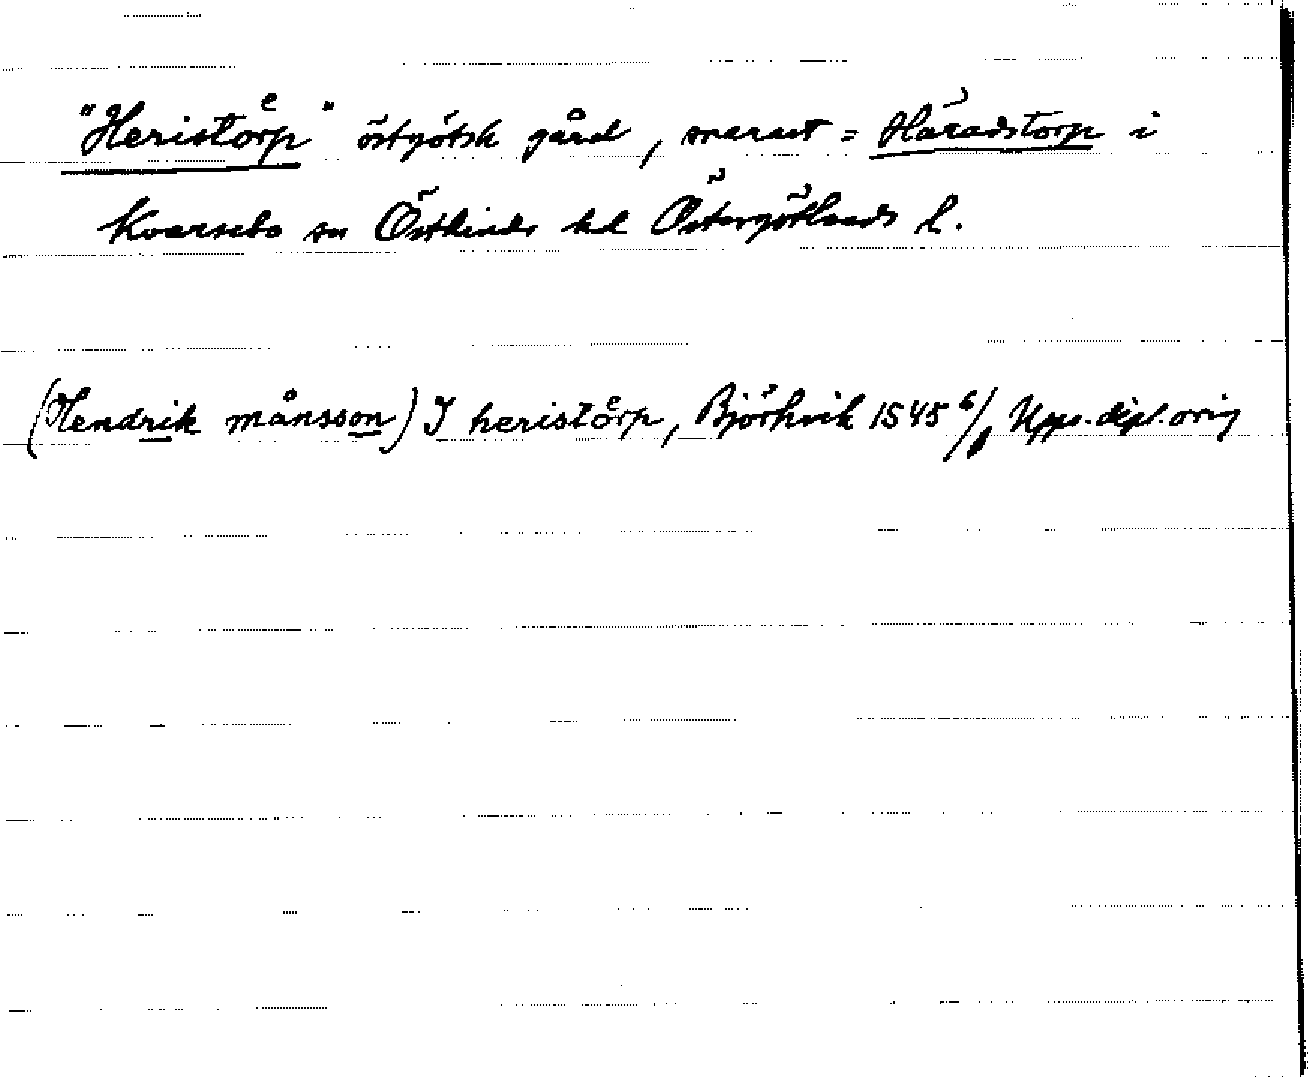 "Heristoͤrp" östgötsk gård, snarast = Häradstorp i
Kvarsebo sn Östkinds hd Östergötlands l.
(Hendrik månsson) I heristoͤrp, Björkvik 1545 6/1 Upps. dipl. orig